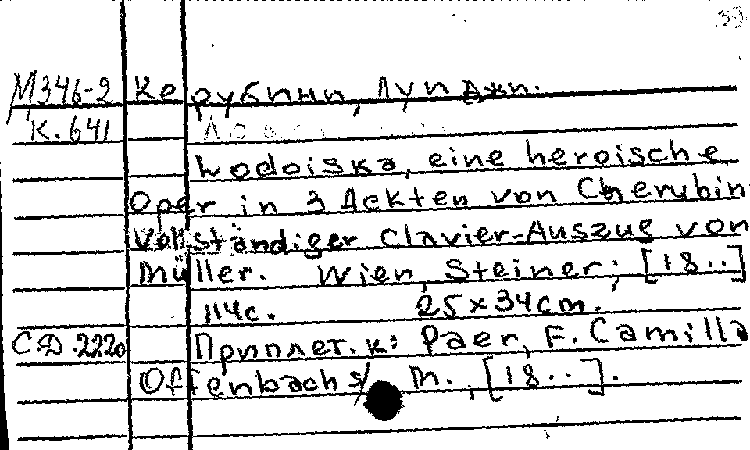 39
М346-2 Керубини, Луиджи.
К. 641
Lodoiska, eine heroische
Oper in 3 Ackten von Cherubin
Vollständiger Clavier-Auszug von
Müller. Wien, Steiner; [18..]
114с. 25x34cm.
СД.2220 Приплет. к: Paer, F. Camilla
Offenbach s/ M., [18..].